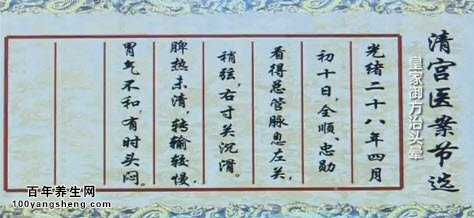 清宫医案节选
皇家御方治头晕
光绪二十八年四月
初十日，全顺、忠勋
看得总管脉息左关，
稍弦，右寸关沉滑。
脾热未清，转输较慢，
胃气不和，有时头闷。
百年养生网
100yangsheng.com